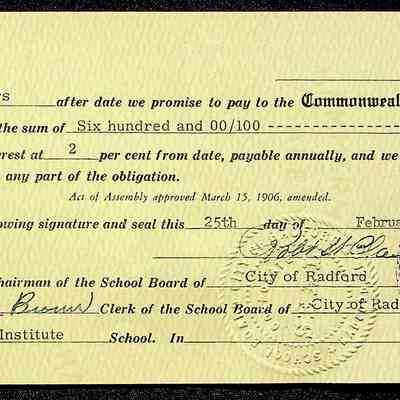 rs after date we promise to pay to the Commonweal
the sum of Six hundred and 00/100 ----------
erest at 2 per cent from date, payable annually, and we
any part of the obligation.
Act of Assembly approved March 15, 1906, amended.
owing signature and seal this 25th day of Februa
hairman of the School Board of City of Radford
Clerk of the School Board of City of Rad
Institute School. In